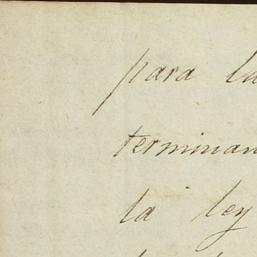 para
terminan
la ley